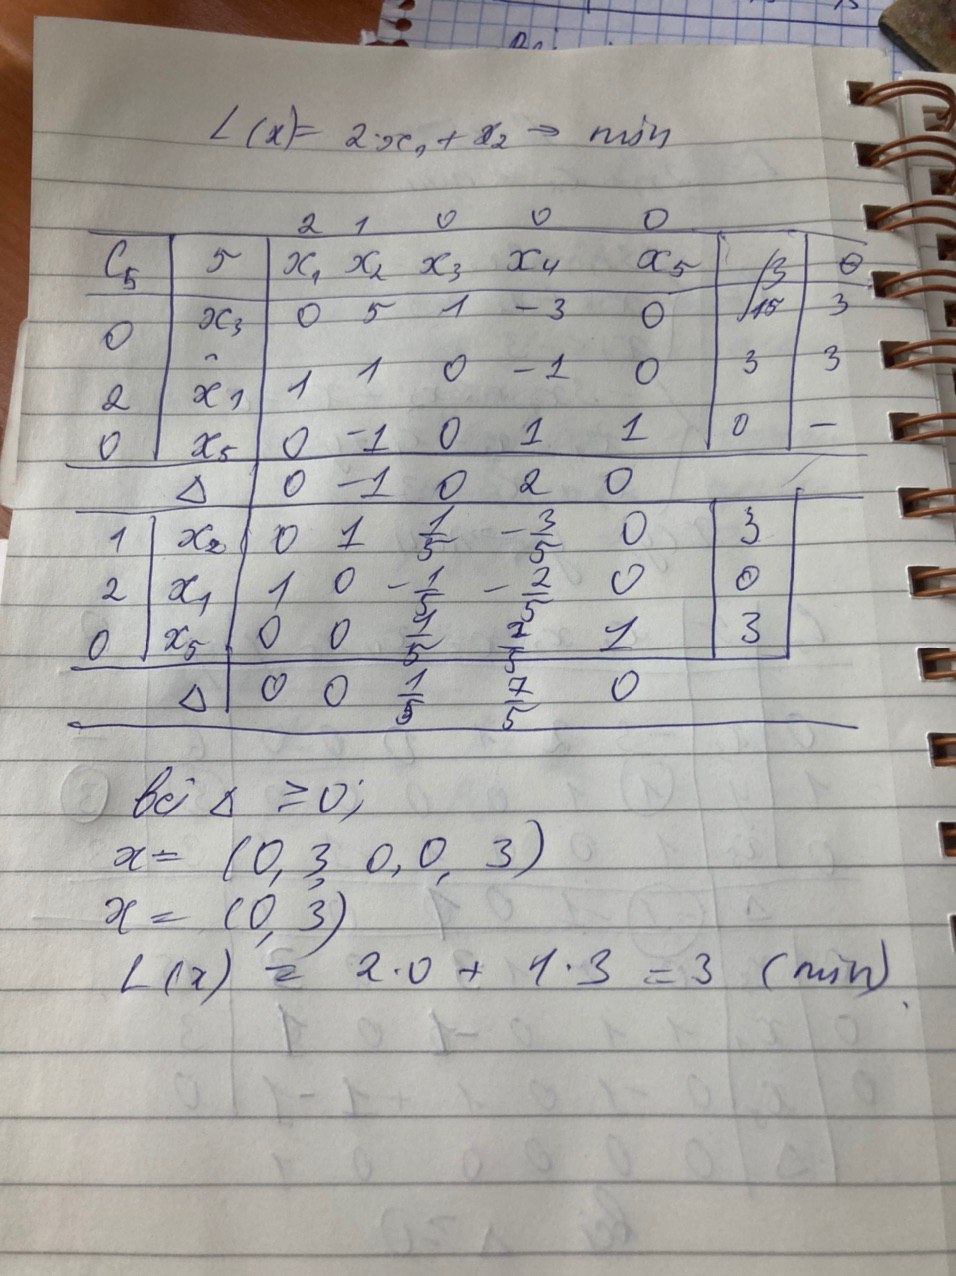 L(x) = 2·x₁ + x₂ → min
2 1 0 0 0
C₅ 5 x₁ x₂ x₃ x₄ x₅ β θ
0 x₃ 0 5 1 -3 0 15 3
2 x₁ 1 1 0 -1 0 3 3
0 x₅ 0 -1 0 1 1 0 -
Δ 0 -1 0 2 0
1 x₂ 0 1 1/5 -3/5 0 3
2 x₁ 1 0 -1/5 -2/5 0 0
0 x₅ 0 0 1/5 2/5 1 3
Δ 0 0 1/5 7/5 0
всі Δ ≥ 0;
x = (0, 3, 0, 0, 3)
x = (0, 3)
L(x) = 2·0 + 1·3 = 3 (min).